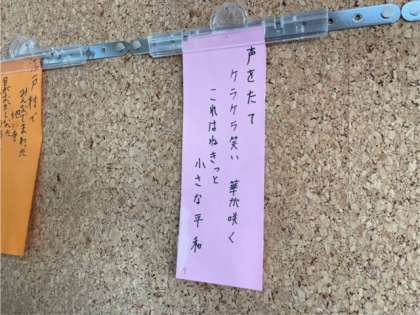 声をたて
ケラケラ笑い 華が咲く
これはねきっと
小さな平和
戸村で
みんなで